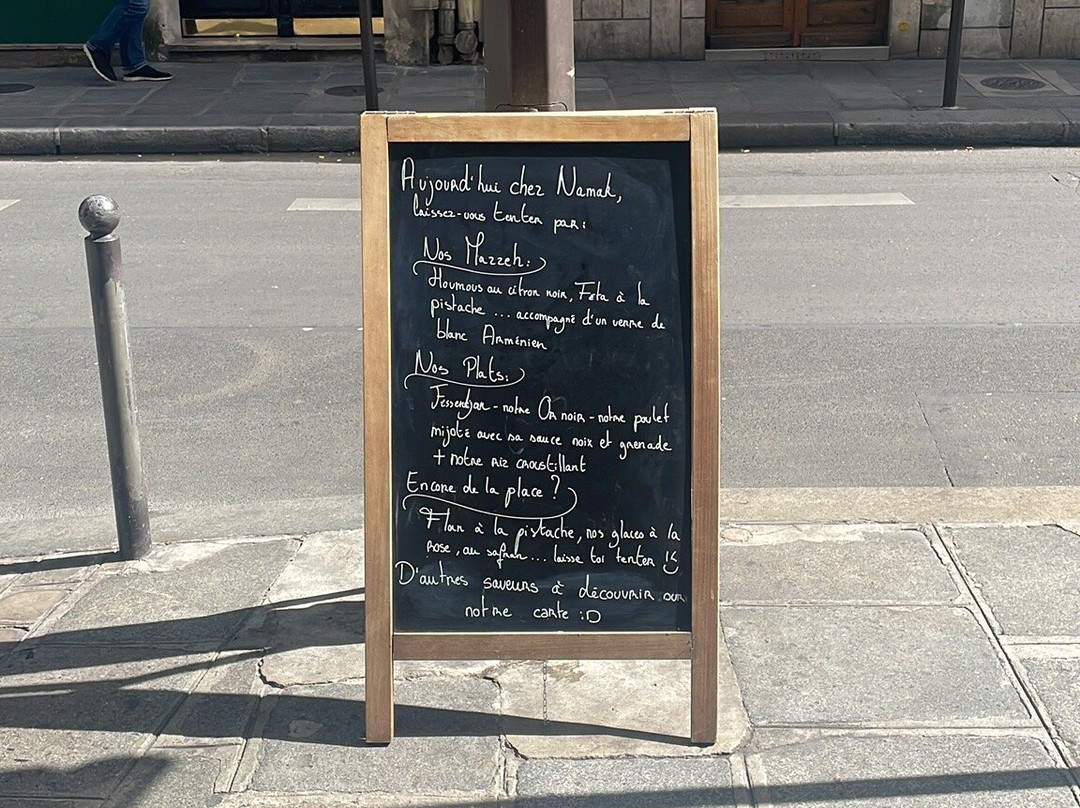 Aujourd'hui chez Namak,
laissez-vous tenter par :
Nos Mazzeh :
Houmous au citron noir, Feta à la
pistache ... accompagné d'un verre de
blanc Arménien
Nos Plats :
Fessendjan - notre Or noir - notre poulet
mijoté avec sa sauce noix et grenade
+ notre riz croustillant
Encore de la place ?
Flan à la pistache, nos glaces à la
rose, au safran... laisse toi tenter
D'autres saveurs à découvrir sur
notre carte :D